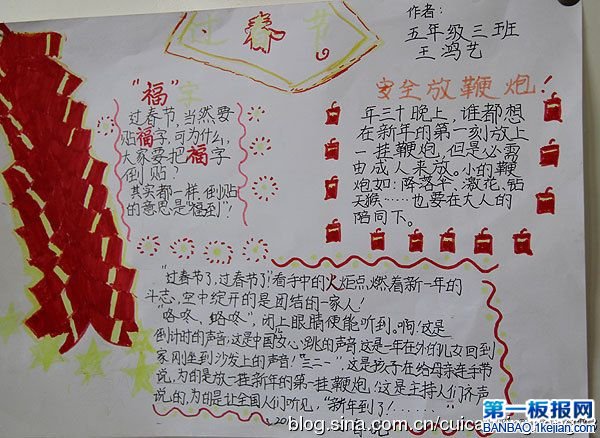 作者:
五年级三班
王鸿艺
过春节
"福"字
过春节,当然要
贴福字,可为什么,
大家要把"福"字
倒贴?
其实都一样,倒贴
的意思是"福到"!
安全放鞭炮!
年三十晚上,谁都想
在新年的第一刻放上
一挂鞭炮,但是必需
由成人来放。小的鞭
炮如:降落伞、激花、钻
天猴……也要在大人的
陪同下。
"过春节了,过春节了!"看手中的火炬点燃着新一年的
斗志,空中绽开的是团结的一家人!
"咯咚、咯咚",闭上眼睛便能听到。啊!这是
倒计时的声音,这是中国在心跳的声音,这是一年在外的儿女回到
家刚坐到沙发上的声音!"三二一",这是孩子在给母亲连手节
说,为的是放一挂新年的第一挂鞭炮!这是主持人们齐声
说的,为的是让全国人们听见,"新年到了!………"
blog.sina.com.cn/cuica
第一板报网
BANBAO.1kejian.com